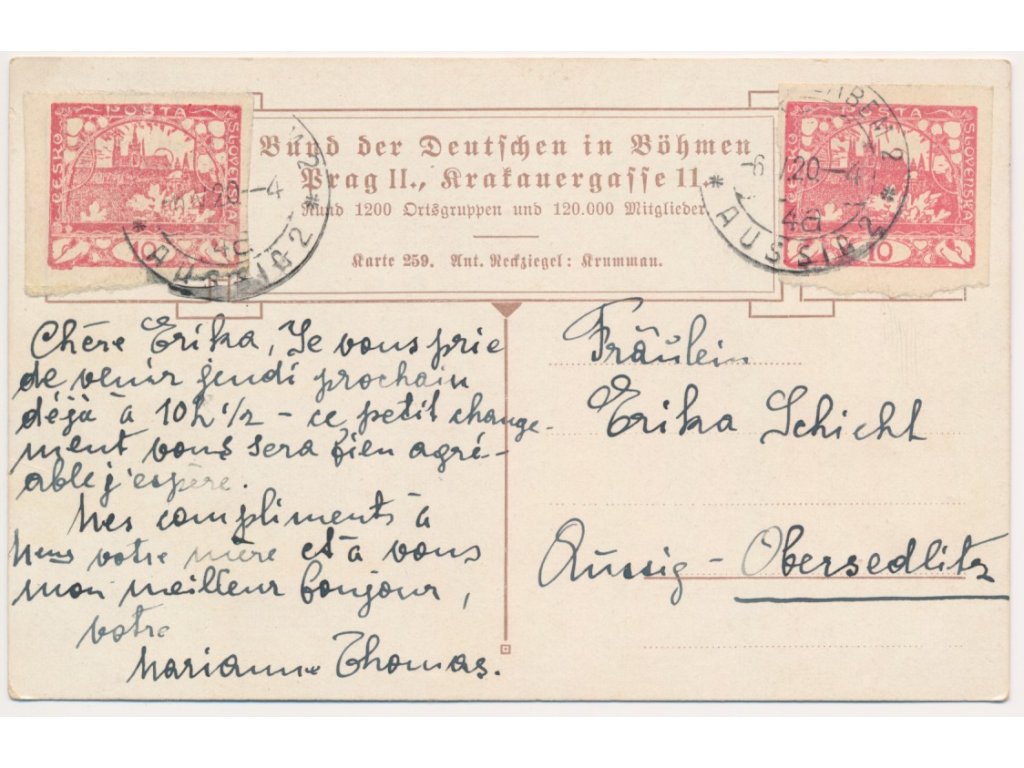 POŠTA
ČESKO
SLOVENSKÁ
10
20-4
4a
* AUSSIG 2 *
Bund der Deutschen in Böhmen
Prag II., Krakauergasse 11.
Rund 1200 Ortsgruppen und 120.000 Mitglieder.
Karte 259. Ant. Neckziegel: Krummau.
POŠTA
SLOVENSKÁ
10
20-4
4a
* AUSSIG 2 *
Chère Erika, Je vous prie
de venir jeudi prochain
déjà à 10h 1/2 - ce petit change-
ment vous sera bien agré-
able j'espère.
Mes compliments à
votre mère et à vous
mon meilleur bonjour,
votre
Marianne Thomas.
Fräulein
Erika Schicht
Aussig - Obersedlitz